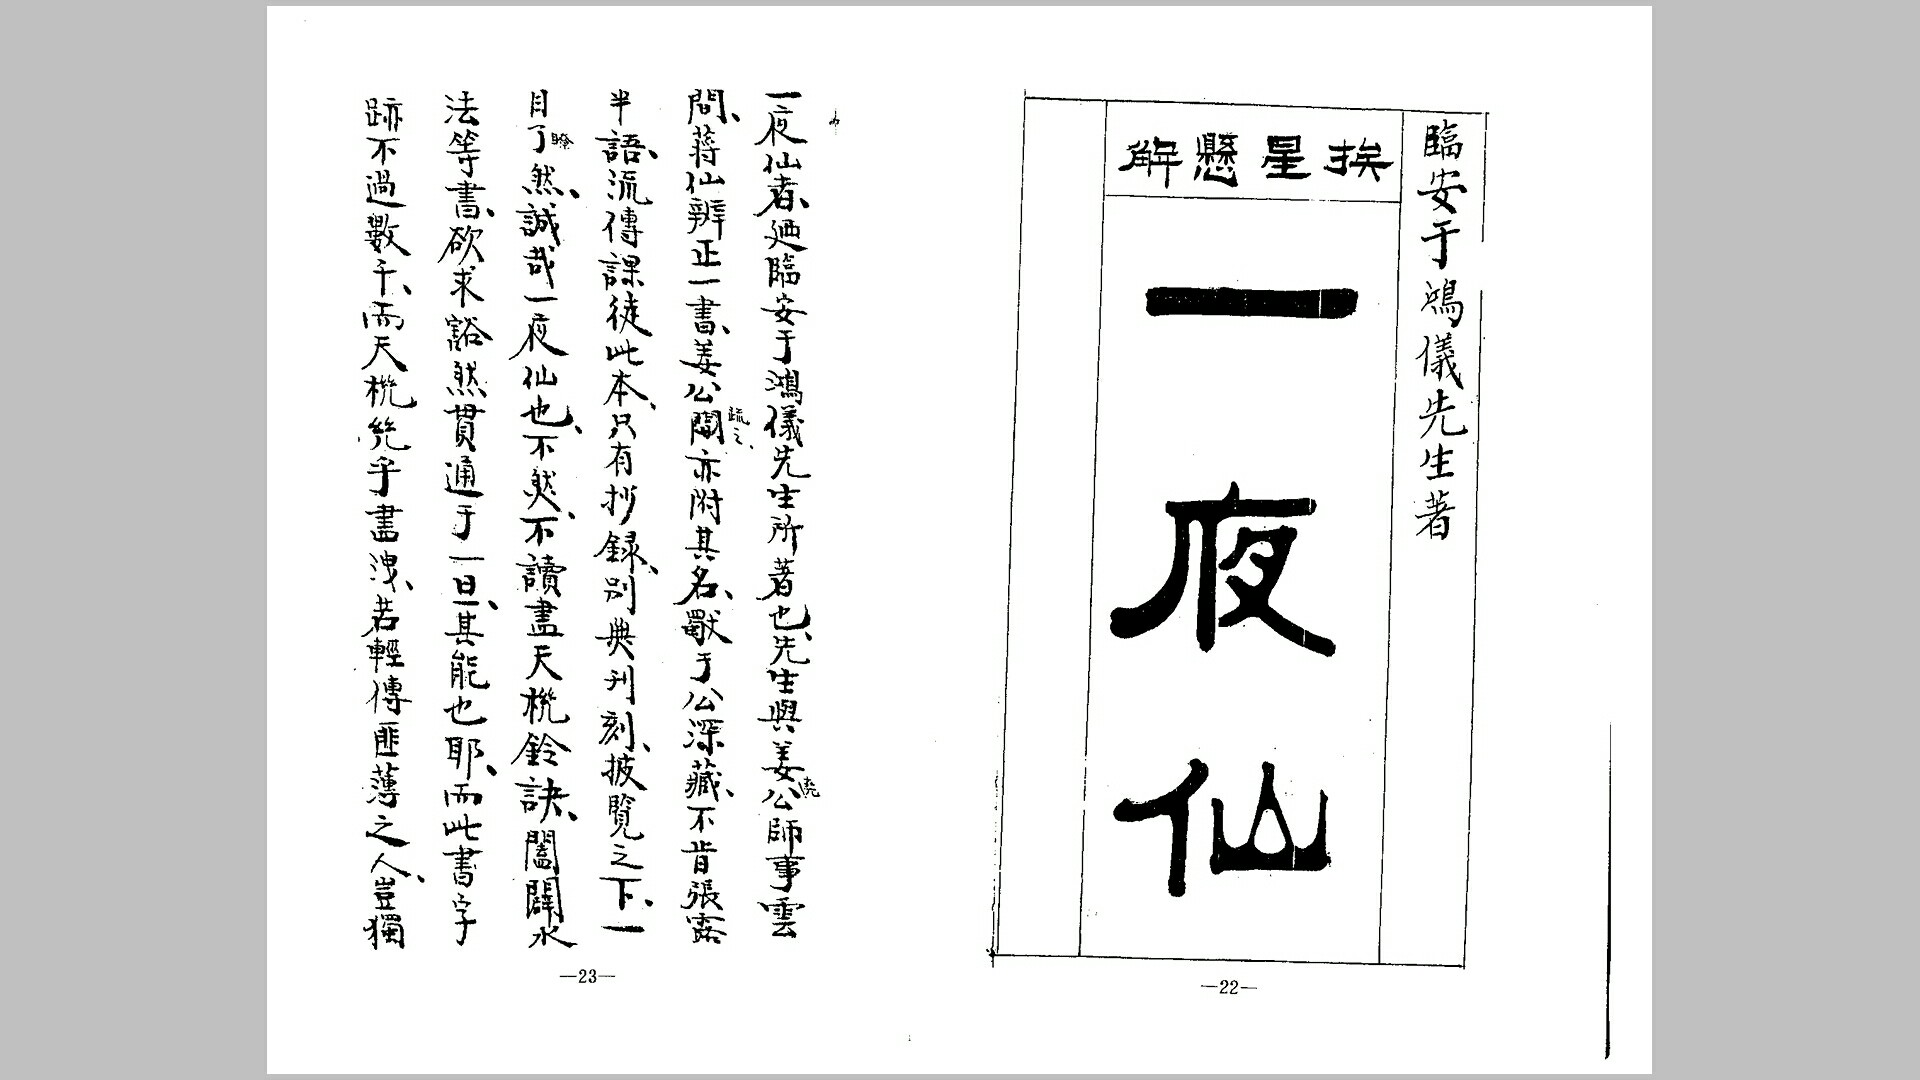 臨安于鴻儀先生著
挨星懸解
一夜仙
—22—
一夜仙者、廼臨安于鴻儀先生所著也、先生與姜公師事雲
間、蔣仙辨正一書、姜公闡疏之、亦附其名、獨于公深藏、不肯張露
半語、流傳課徒此本、只有抄録、別無刊刻、披覽之下、一
目了然、誠哉一夜仙也、不然、不讀盡天機鈐訣、闔闢水
法等書、欲求豁然貫通于一旦、其能也耶、而此書字
跡不過數千、而天機幾乎盡洩、若輕傳匪薄之人、豈獨
—23—